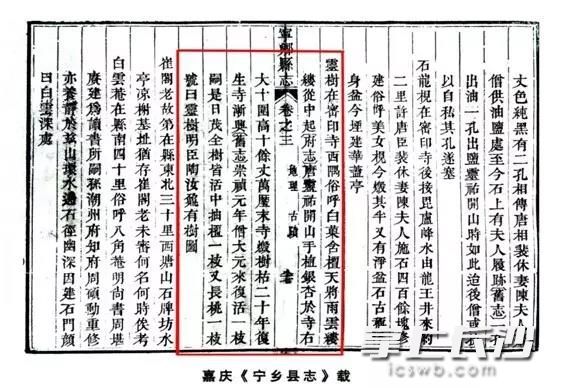 丈色純黑有二孔相傳唐相裴休妻陳夫人
僧供油鹽處至今石上有夫人履跡舊志云
出油一孔出鹽靈祐開山時如此迨後僧或
以自私其孔遂塞
石龍梘在密印寺後接毘盧峰水由龍王井來約
二里許唐臣裴休妻陳夫人施石四百餘塊修
建俗呼美女梘今燬其半又有淨盆石古裸
身盆今埋建華蓋亭
靈樹在密印寺西隅俗呼白菓含檀天將雨雲縷
縷從中起府志唐靈祐開山手植銀杏於寺右
大十圍高十餘丈萬厯末寺燬樹枯二十年復
生寺漸興舊志崇禎元年僧大元來復活一枝
嗣是日茂全樹皆活中抽檀一枝又長桃一枝
號曰靈樹明臣陶汝鼐有樹圖
崔閣老故第在縣東北三十里西塘山石牌坊水
亭涼榭基址猶存崔閣老未審何名何時俟考
白雲庵在縣南四十里俗呼八角庵明尚書周堪
賡建爲讀書所嗣孫潮州府知府周碩勳重修
亦養靜於茲山環水遶石徑幽深因建石門顏
曰白雲深處
寧鄉縣志
卷之三
地理 古蹟
嘉庆《宁乡县志》载
掌上长沙
icswb.com